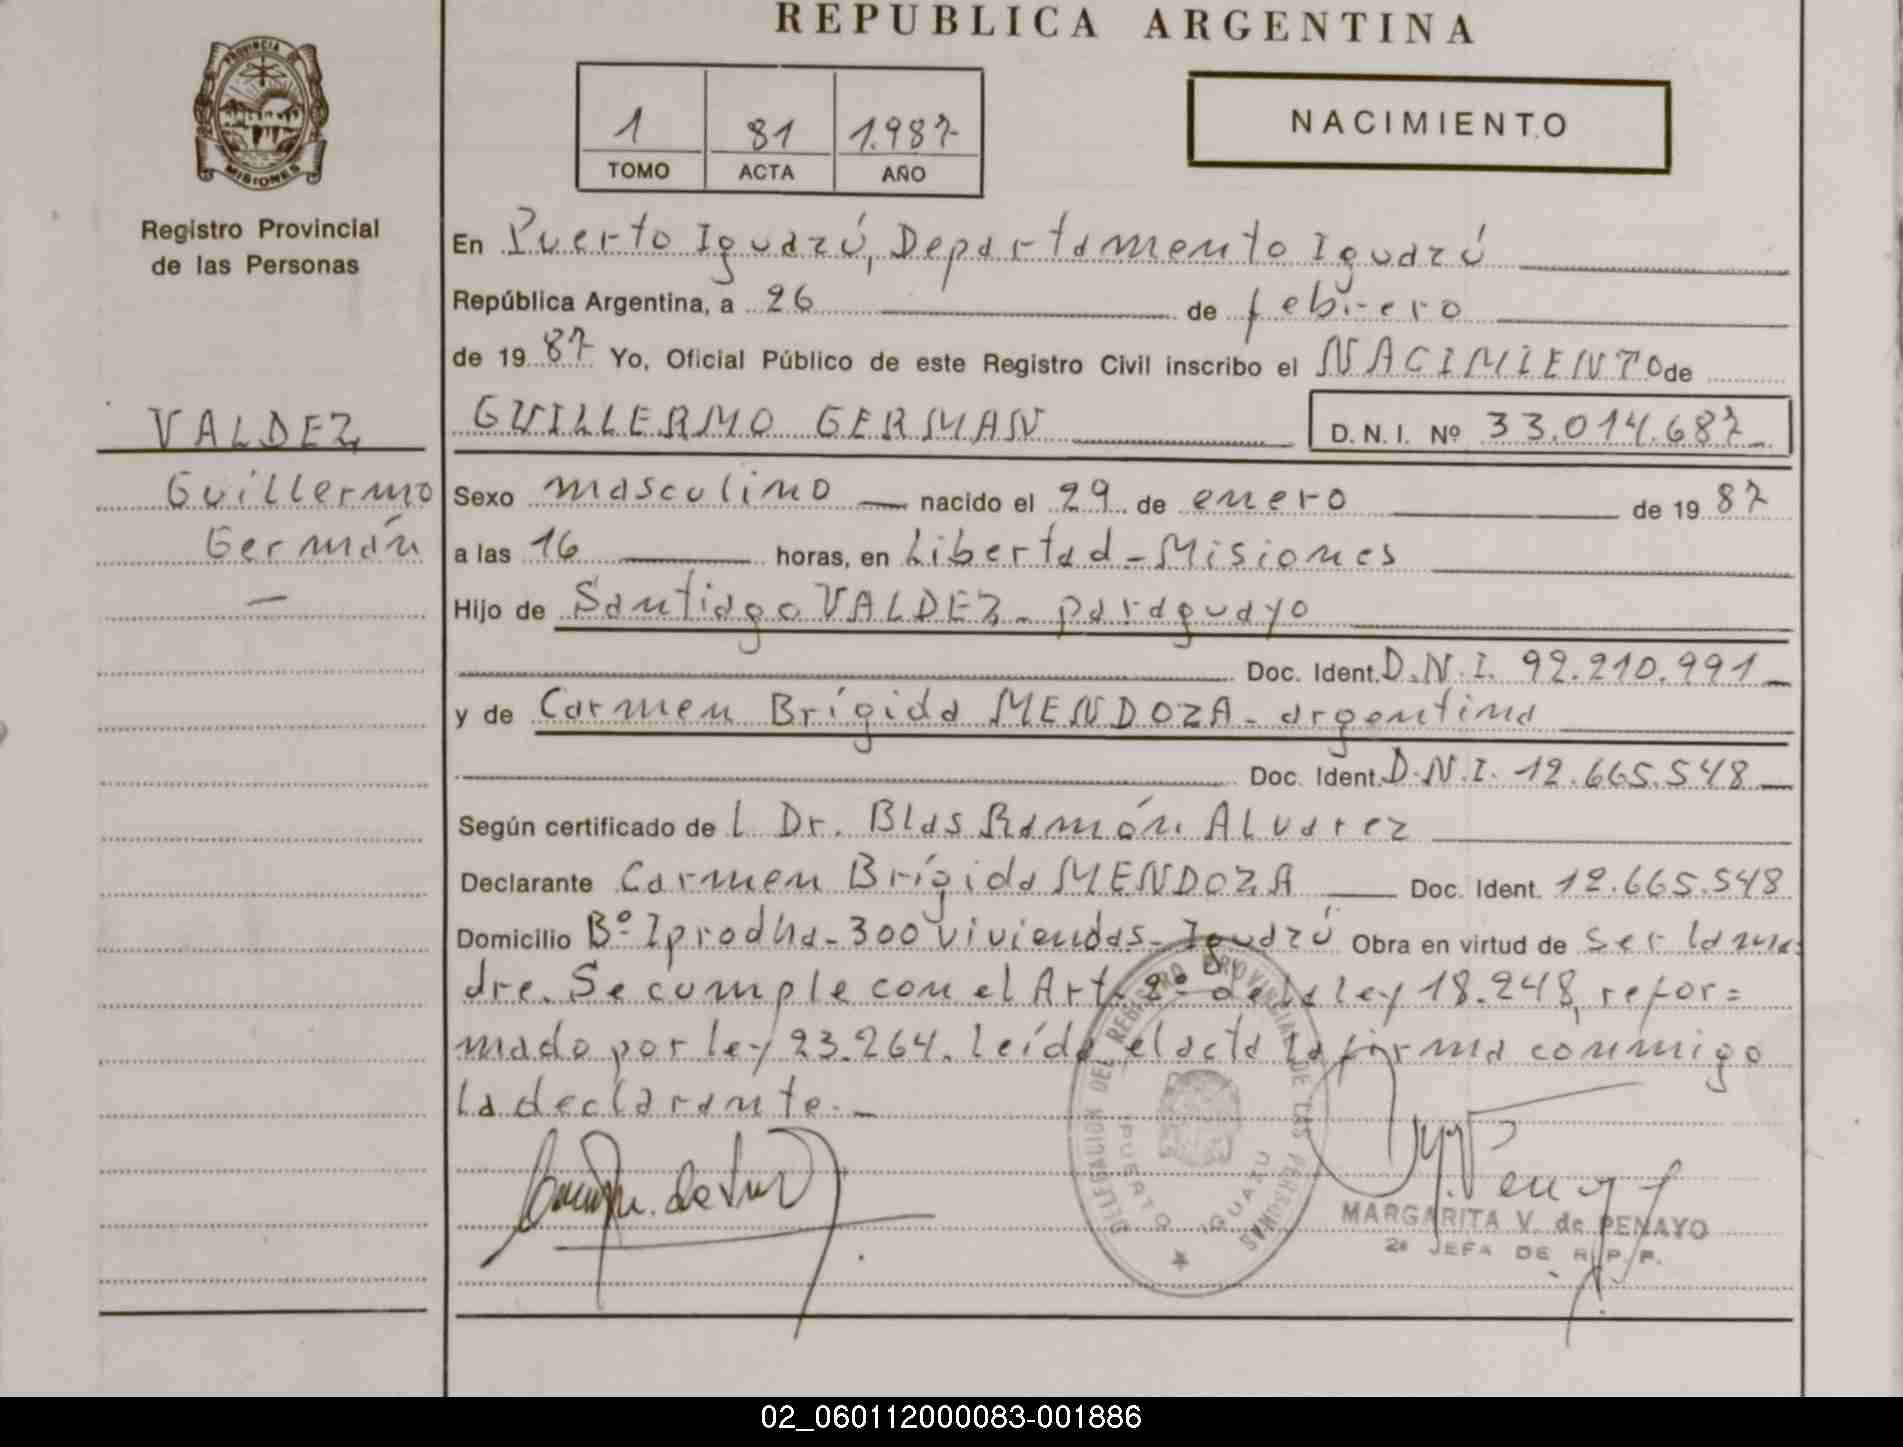 REPUBLICA ARGENTINA
PROVINCIA DE
MISIONES
Registro Provincial
de las Personas
1 81 1.987
TOMO ACTA AÑO
NACIMIENTO
En Puerto Iguazú, Departamento Iguazú
República Argentina, a 26 de febrero
de 1987 Yo, Oficial Público de este Registro Civil inscribo el NACIMIENTO de
VALDEZ
Guillermo
Germán
GUILLERMO GERMAN D.N.I. Nº 33.014.687
Sexo masculino nacido el 29 de enero de 1987
a las 16 horas, en Libertad - Misiones
Hijo de Santiago VALDEZ - paraguayo
Doc. Ident. D.N.I. 92.210.991
y de Carmen Brígida MENDOZA - argentina
Doc. Ident. D.N.I. 12.665.548
Según certificado de l Dr. Blas Ramón Alvarez
Declarante Carmen Brígida MENDOZA Doc. Ident. 12.665.548
Domicilio Bº Iprodha - 300 viviendas - Iguazú Obra en virtud de ser la ma
dre. Se cumple con el Art. 2º de la ley 18.248, refor=
mado por ley 23.264. Leída el acta la firma conmigo
la declarante.-
DELEGACION DEL REGISTRO PROVINCIAL DE LAS PERSONAS
PUERTO IGUAZU
MARGARITA V. de PENAYO
2ª JEFA DE R.P.P.
02_060112000083-001886